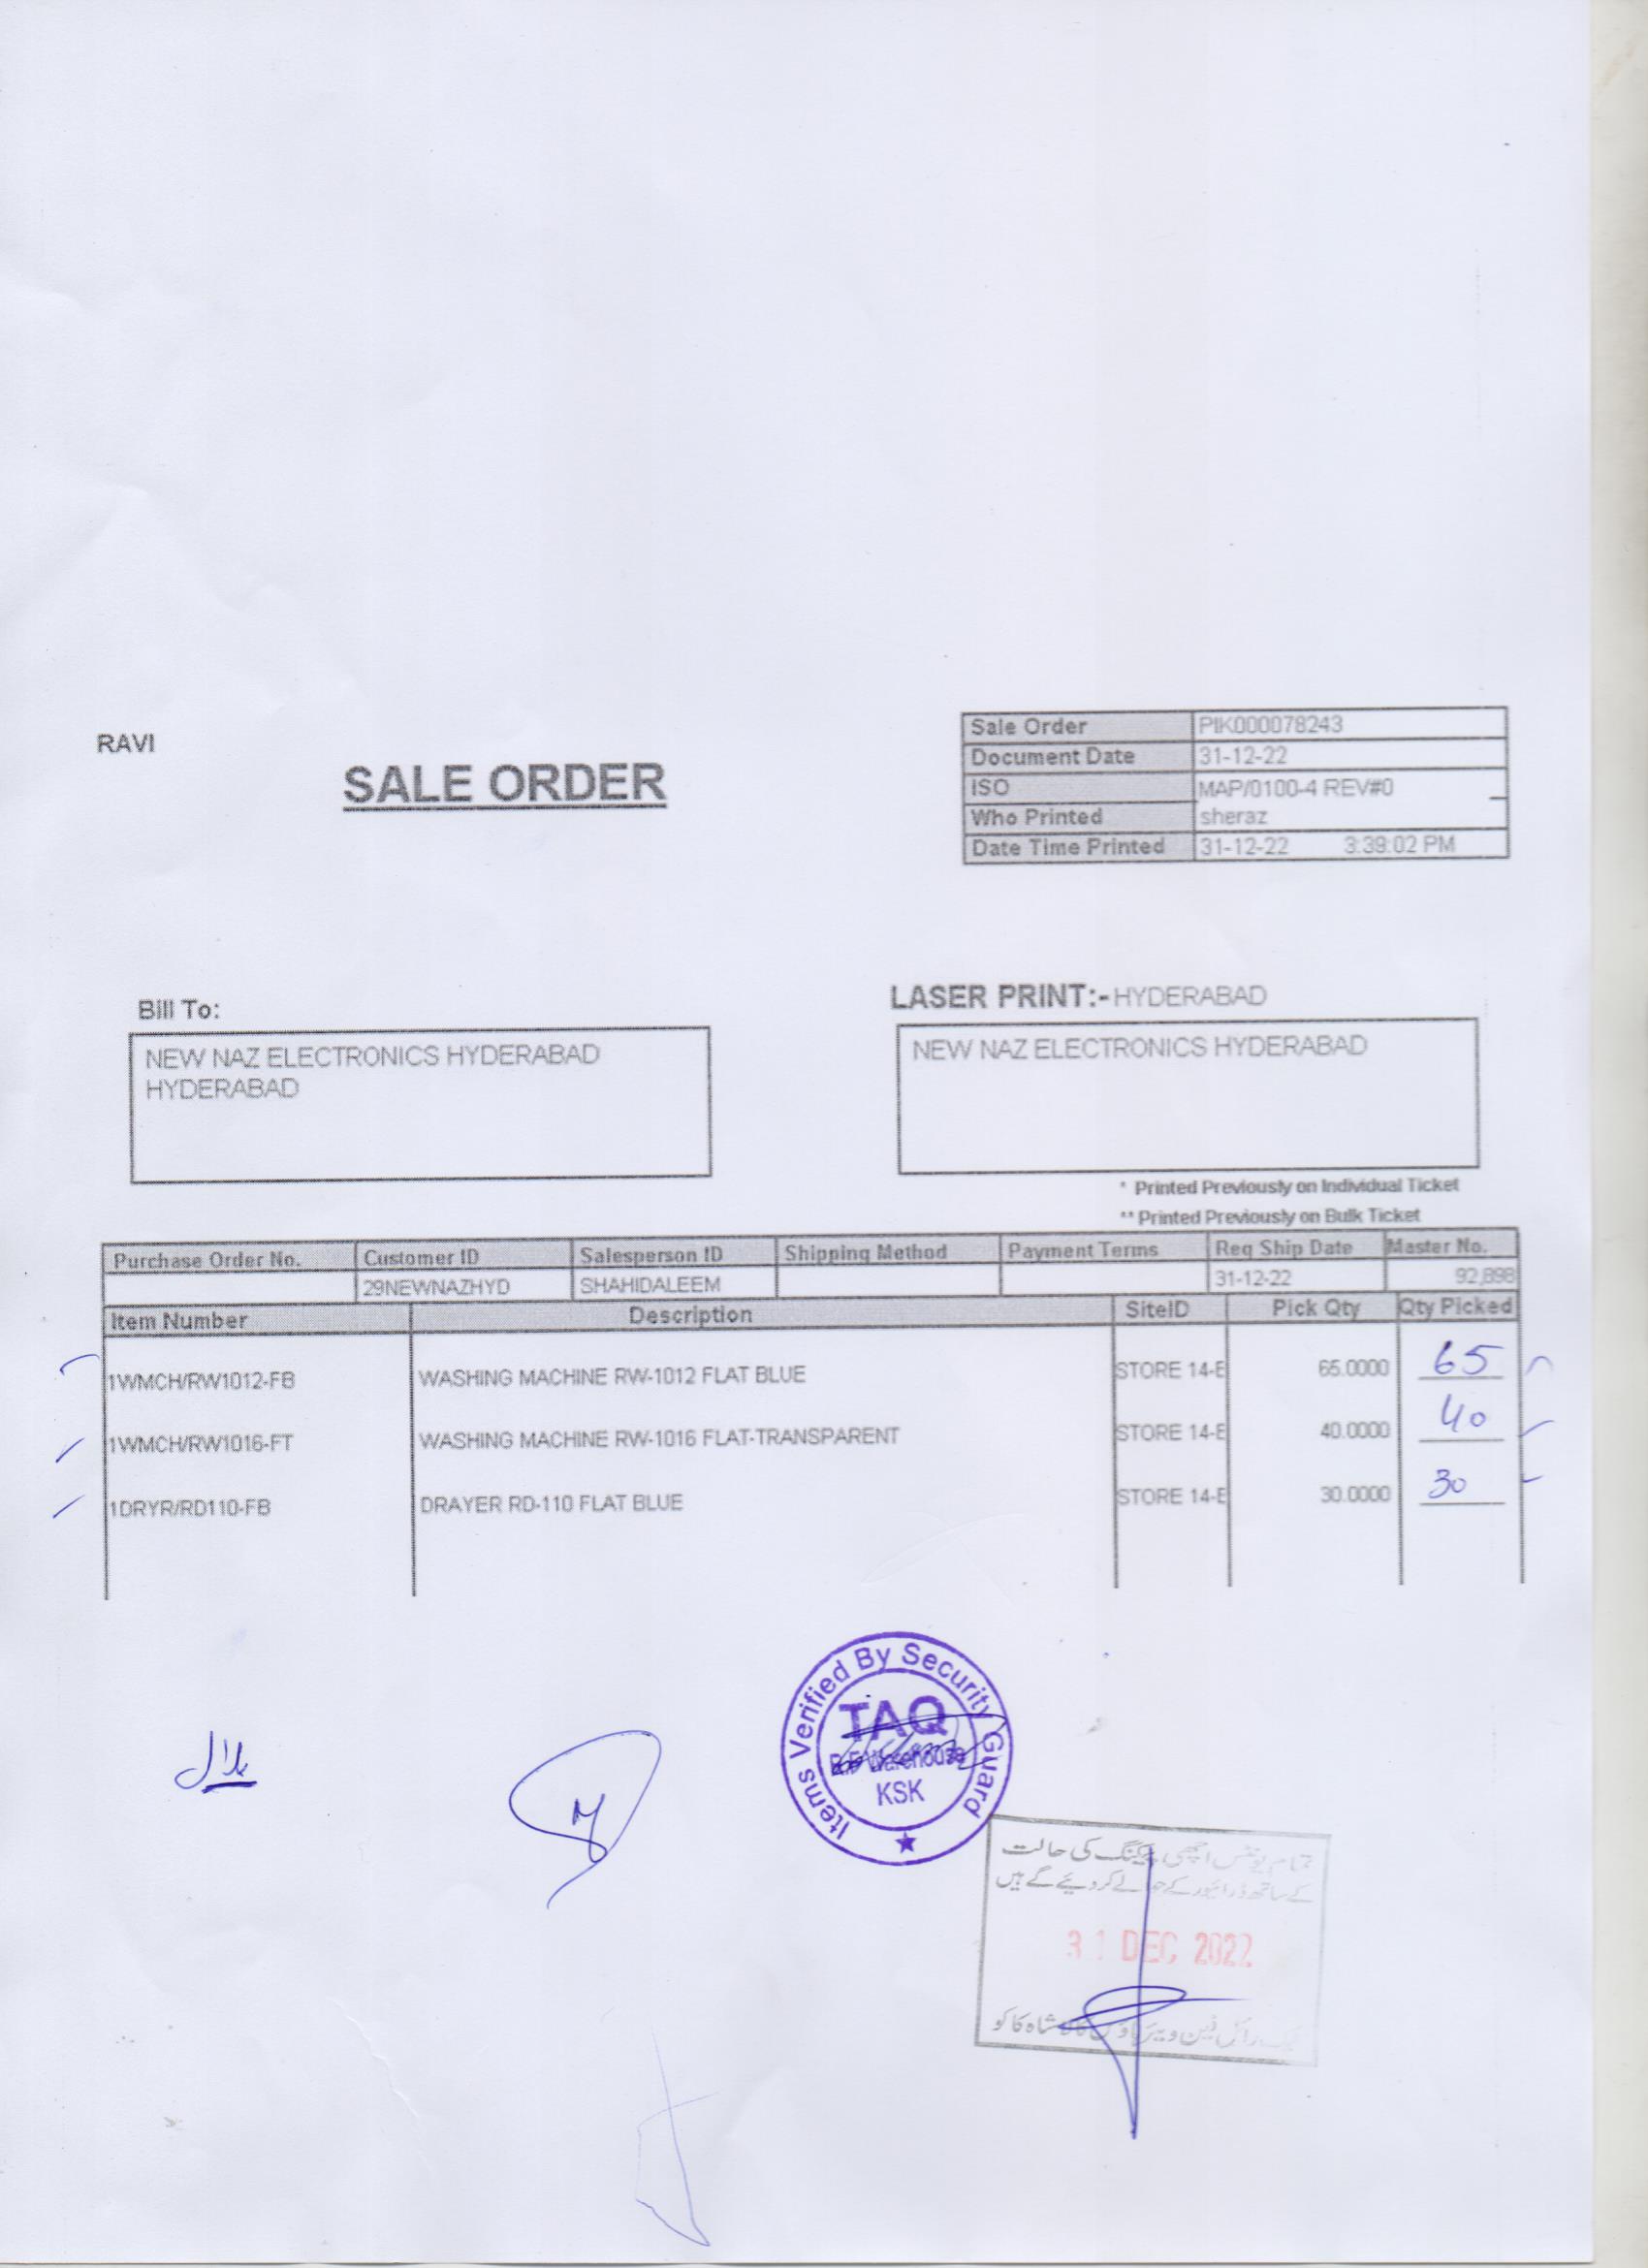 RAVI
SALE ORDER
Sale Order PIK000078243
Document Date 31-12-22
ISO MAP/0100-4 REV#0
Who Printed sheraz
Date Time Printed 31-12-22 3:39:02 PM
Bill To:
NEW NAZ ELECTRONICS HYDERABAD
HYDERABAD
LASER PRINT:- HYDERABAD
NEW NAZ ELECTRONICS HYDERABAD
* Printed Previously on Individual Ticket
** Printed Previously on Bulk Ticket
Purchase Order No. Customer ID Salesperson ID Shipping Method Payment Terms Req Ship Date Master No.
29NEWNAZHYD SHAHIDALEEM 31-12-22 92,898
Item Number Description SiteID Pick Qty Qty Picked
1WMCH/RW1012-FB WASHING MACHINE RW-1012 FLAT BLUE STORE 14-E 65.0000 65
1WMCH/RW1016-FT WASHING MACHINE RW-1016 FLAT-TRANSPARENT STORE 14-E 40.0000 40
1DRYR/RD110-FB DRAYER RD-110 FLAT BLUE STORE 14-E 30.0000 30
Items Verified By Security Guard
TAQ
R.F Warehouse
KSK
بلال
تمام یونٹس اچھی پیکنگ کی حالت
کے ساتھ ڈرائیور کے حوالے کر دیئے گے ہیں
31 DEC 2022
رائل فین ویئر ہاؤس کالا شاہ کاکو